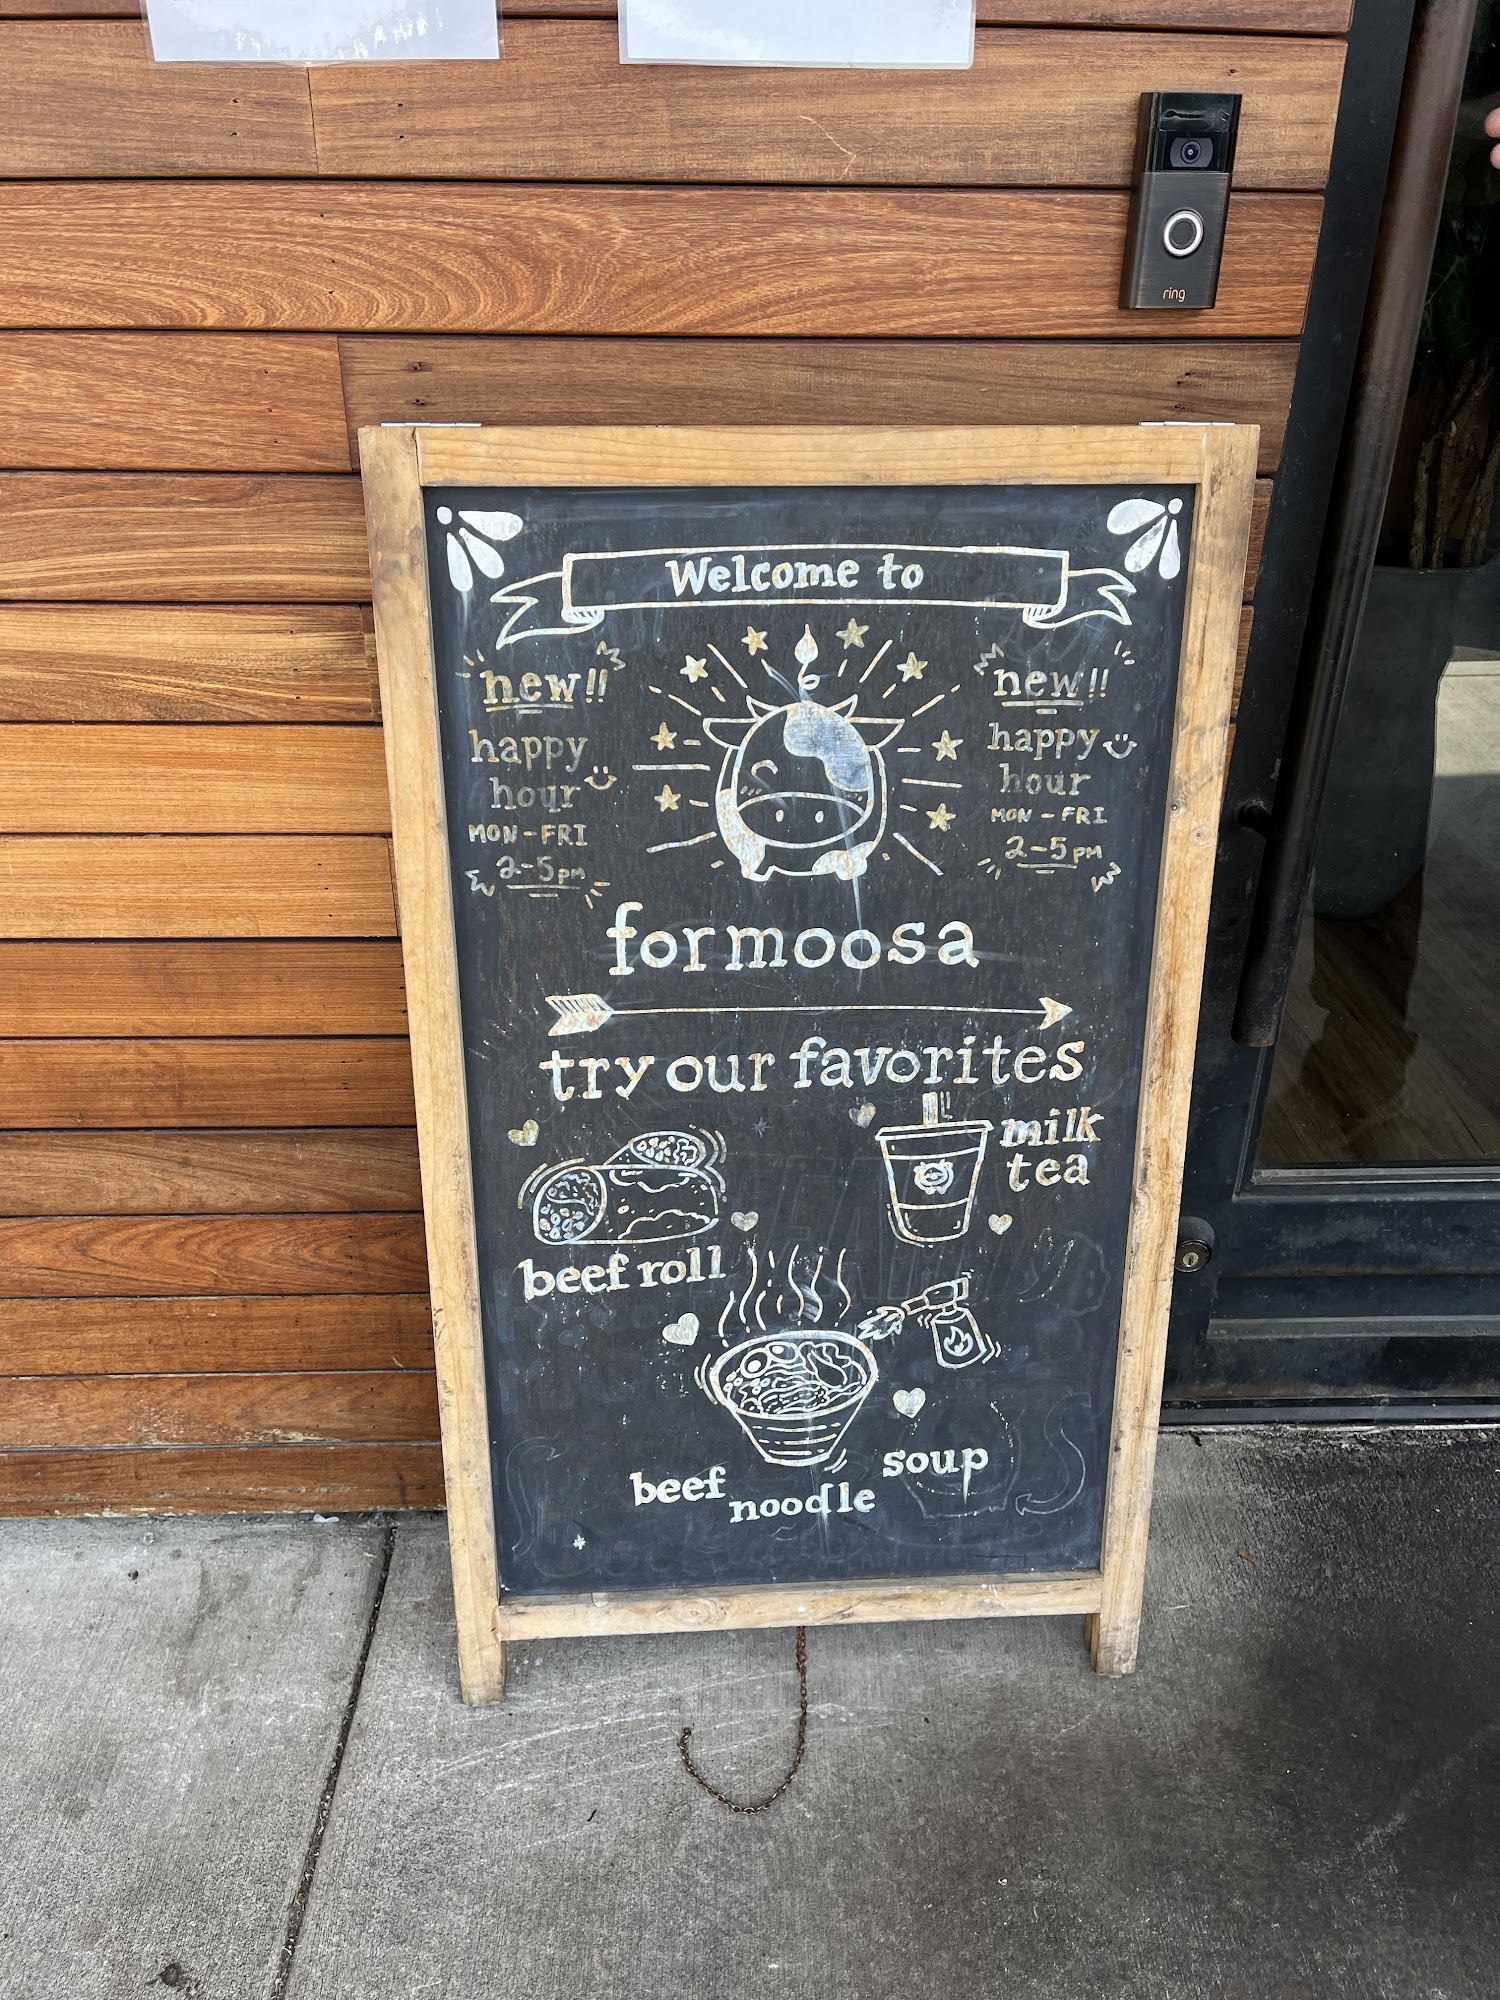 ring
Welcome to
new!!
happy
hour
MON-FRI
2-5pm
new!!
happy
hour
MON-FRI
2-5pm
formoosa
try our favorites
milk
tea
beef roll
beef
noodle
soup